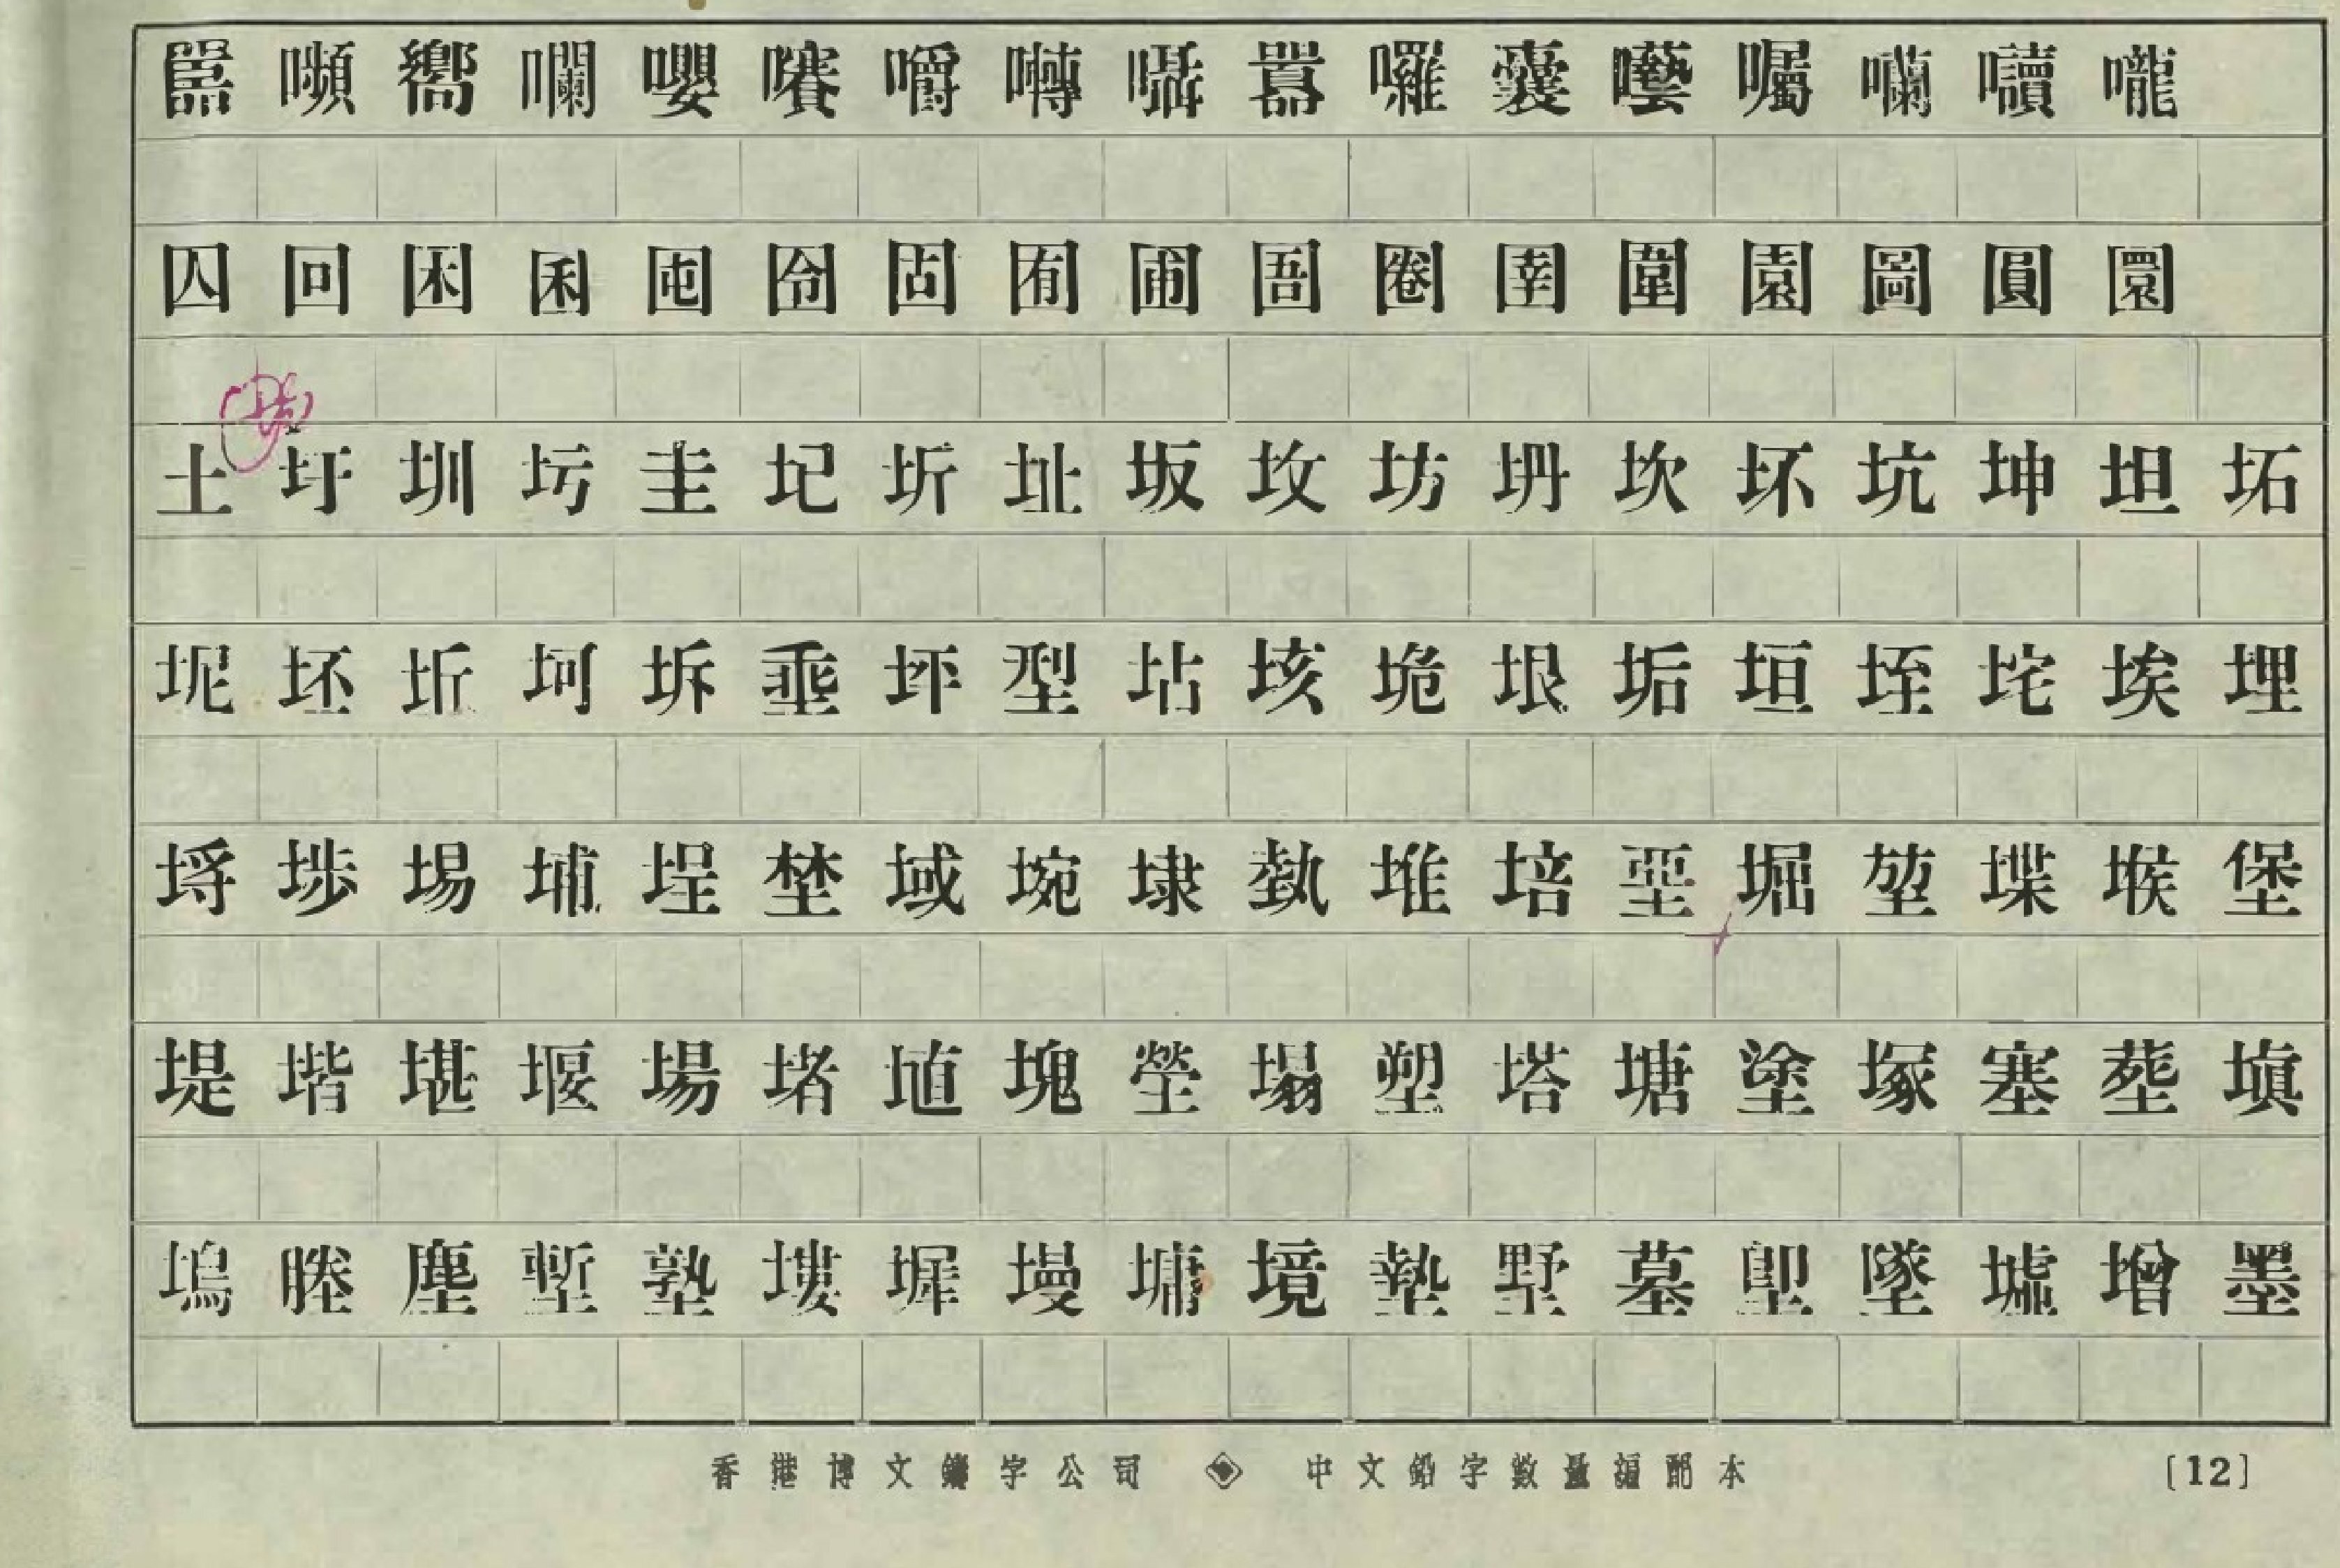 嚚嚬嚮囒嚶嚽嚼囀囁囂囉囊囈囑囒囋嚨
囚回困囷囤囹固囿圃圄圈圉圍園圖圓圜
土圩圳圬圭圮圻址坂坟坊坍坎坏坑坤坦坧
坭坯坼坷坼垂坪型坫垓垝垠垢垣垤垞埃埋
埒埗埸埔埕埜域埦埭執堆培堊堀堃堞堠堡
堤堦堪堰場堵埴塊塋塌塑塔塘塗塚塞塟填
塢塍塵塹塾塿墀墁墉境墊墅墓堲墜墟增墨
香港博文鑄字公司 中文鉛字數量編配本 [12]